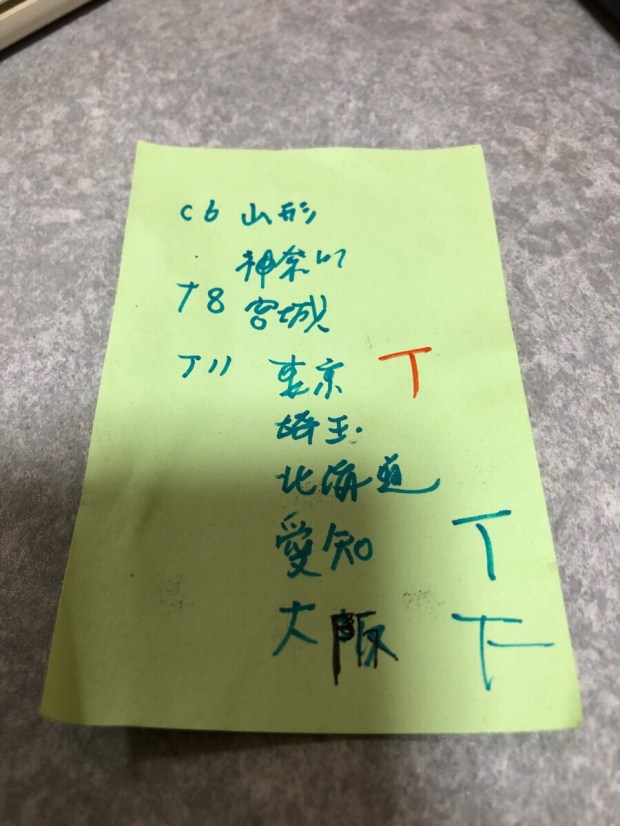 C6 山形
神奈川
T8 宮城
T11 東京 T
埼玉
北海道
愛知 T
大阪 下